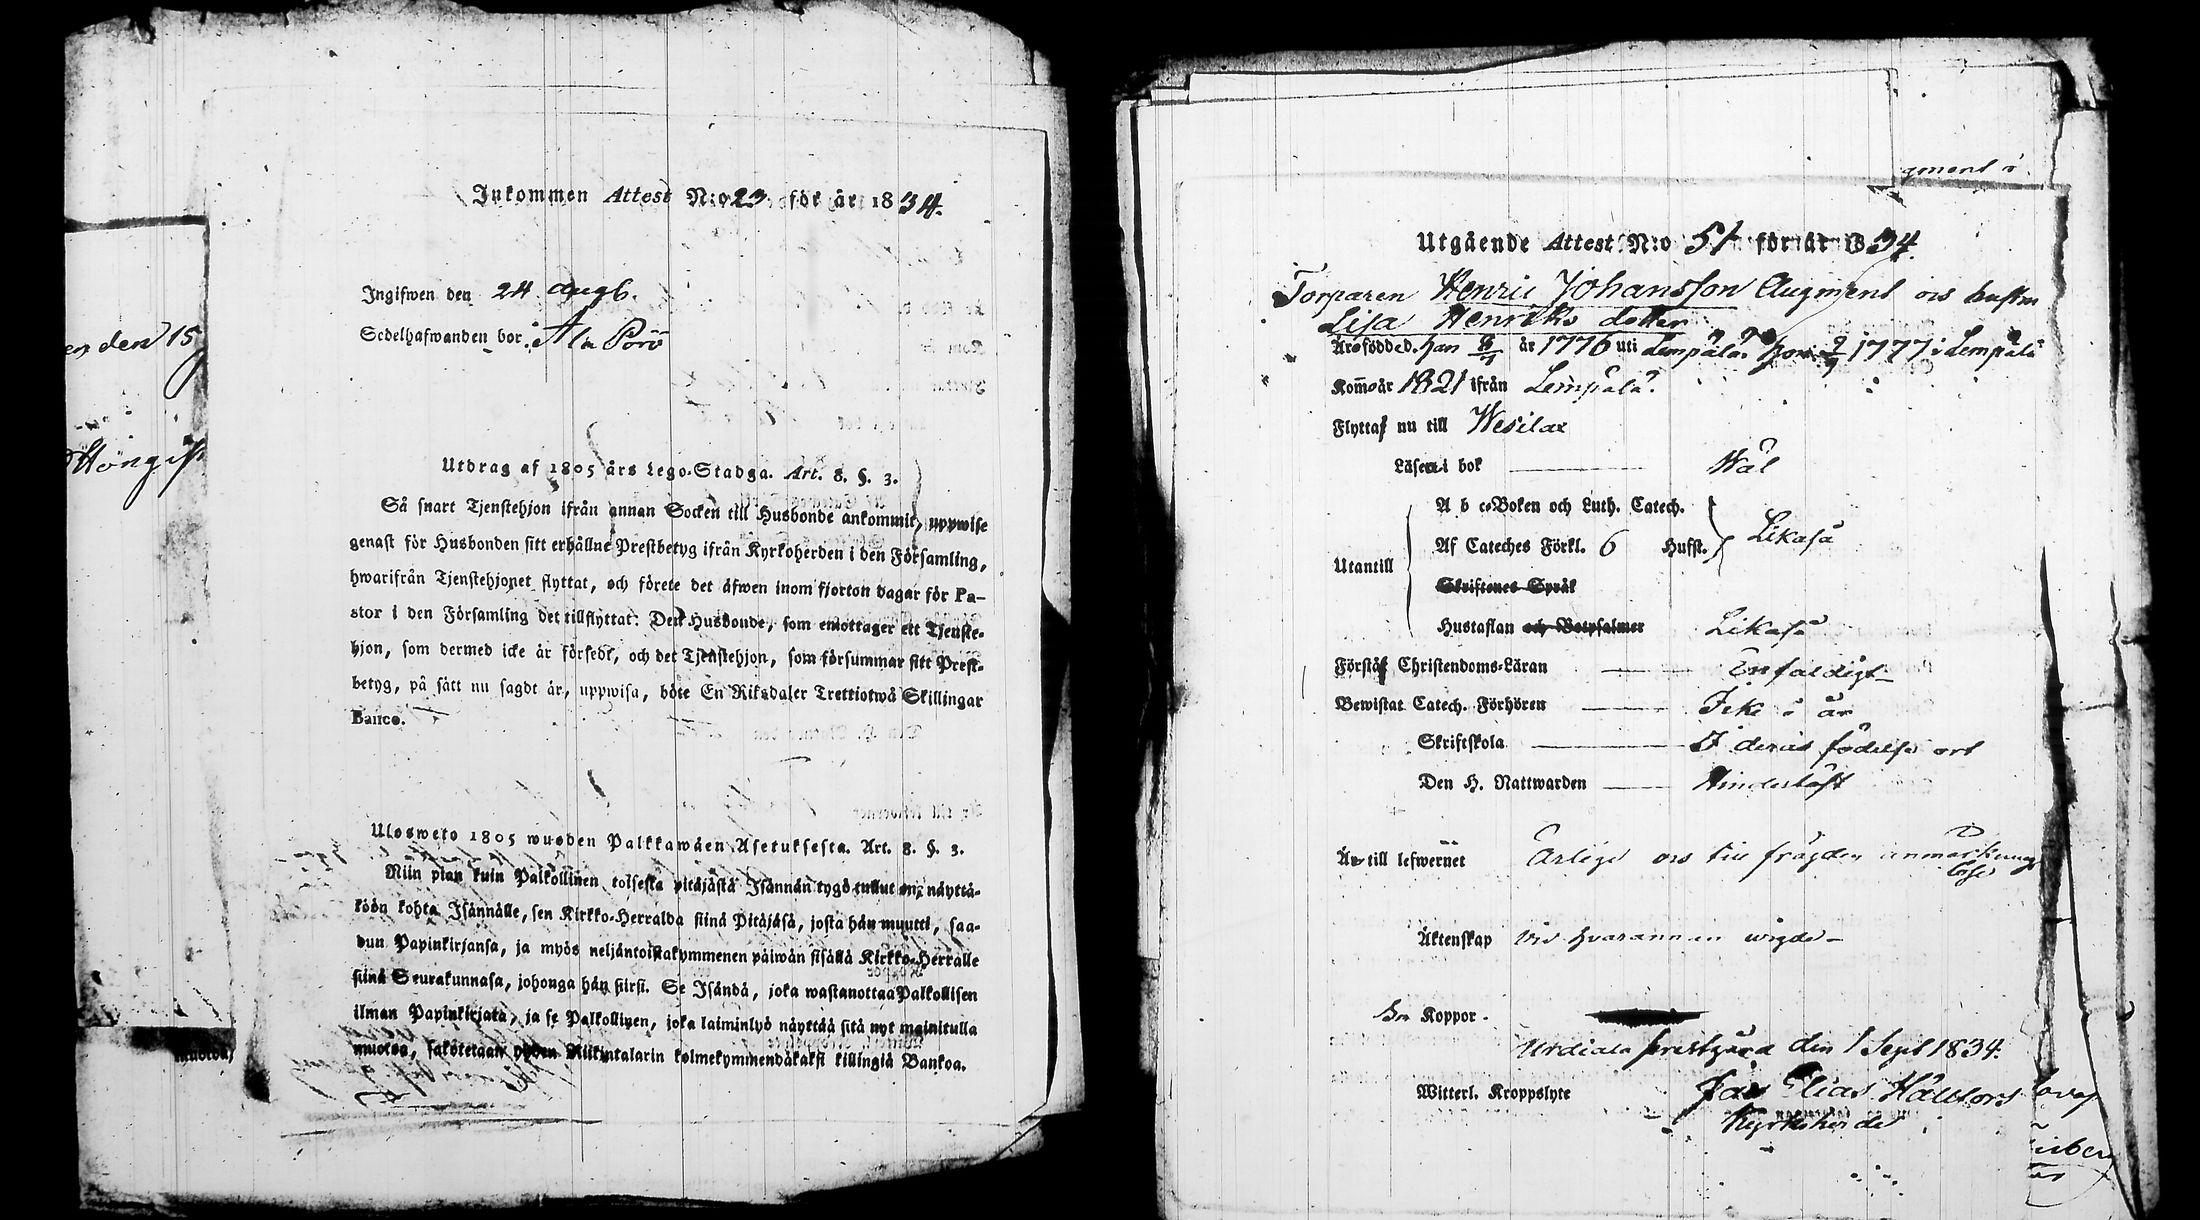 en den 15
Inkommen Attest N:o 23 för år 1834.
Ingifwen den 24 Augb.
Sedelhafwanden bor: Ala Pörö
Utdrag af 1805 års Lego-Stadga. Art. 8. §. 3.
Så snart Tjenstehjon ifrån annan Socken till Husbonde ankommit, uppwise
genast för Husbonden sitt erhållne Prestbetyg ifrån Kyrkoherden i den Församling,
hwarifrån Tjenstehjonet flyttat, och förete det äfwen inom fjorton dagar för Pa-
stor i den Församling det tillflyttat: Den Husbonde, som emottager ett Tjenste-
hjon, som dermed icke är försedt, och det Tjenstehjon, som försummar sitt Prest-
betyg, på sätt nu sagdt är, uppwisa, böte En Riksdaler Trettiotwå Skillingar
Banco.
Ulosweto 1805 wuoden Palkkawäen Asetuksesta. Art. 8. §. 3.
Niin pian kuin Palkollinen toisesta pitäjästä Isännän tygö tullut on, näyttä-
köön kohta Isännälle, sen Kirkko-Herralda siinä Pitäjäsä, josta hän muutti, saa-
dun Papinkirjansa, ja myös neljäntoistakymmenen päiwän sisällä Kirkko-Herralle
siinä Seurakunnasa, johonga hän siirsi. Se Isändä, joka wastanottaa Palkollisen
ilman Papinkirjata, ja se Palkollinen, joka laiminlyö näyttää sitä nyt mainitulla
muotoa, sakotetaan yhden Riikintalarin kolmekymmendäkaksi killingiä Bankoa.
muotoa,
gment i
Utgående Attest N:o 51 för år 1834.
Torparen Henric Johansson Augment och hustru
Lisa Henriks dotter
Äro födde d. han år 1776 uti Lempälä, hon 1777 i Lempälä
Kommo år 1821 ifrån Lempälä.
Flytta nu till Wesilax
Läsa i bok Wäl
A b c-Boken och Luth. Catech.
Utantill Af Cateches Förkl. 6 Hufst. Likaså
Skriftenes Språk
Hustaflan och Botpsalmer Likaså
Förstå Christendoms-Läran Enfaldigt
Bewistat Catech. Förhören Icke i år
Skriftskola I deras födelse ort
Den H. Nattwarden Hinderlöst
Är till lefwernet Ärlige och till frägden anmärknings
löse
Äktenskap Med hvarannan wigde
Koppor.
Urdiala prestgård den 1 Sept 1834.
Witterl. Kroppslyte Elias Hällfors
Kyrkoherde